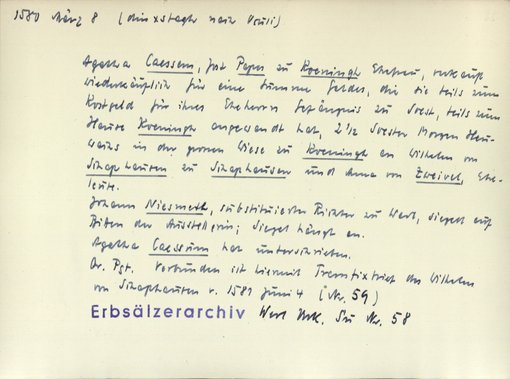 1580 März 8 (dinxstaghs nach Oculi)
Agatha Caessem, Jost Papen zu Koeningh Ehefrau, verkauft
wiederkäuflich für eine Summe Geldes, die sie teils zum
Kostgeld für ihres Eheherrn Gefängnis zu Soest, teils zum
Hause Koeningh angewandt hat, 2 1/2 Soester Morgen Heu-
wachs in der grossen Wiese zu Koeningh an Wilhelm von
Schaphausen zu Schaphausen und Anna von Zweivel, Ehe-
leute.
Johann Niesmeth, substituierter Richter zu Werl, siegelt auf
Bitten der Ausstellerin; Siegel hängt an.
Agatha Caessem hat unterschrieben.
Or. Pgt. Verbunden ist hiermit Transfixbrief des Wilhelm
von Schaphausen v. 1581 Juni 4 (Nr. 59)
Erbsälzerarchiv Werl Urk. Nr. 58